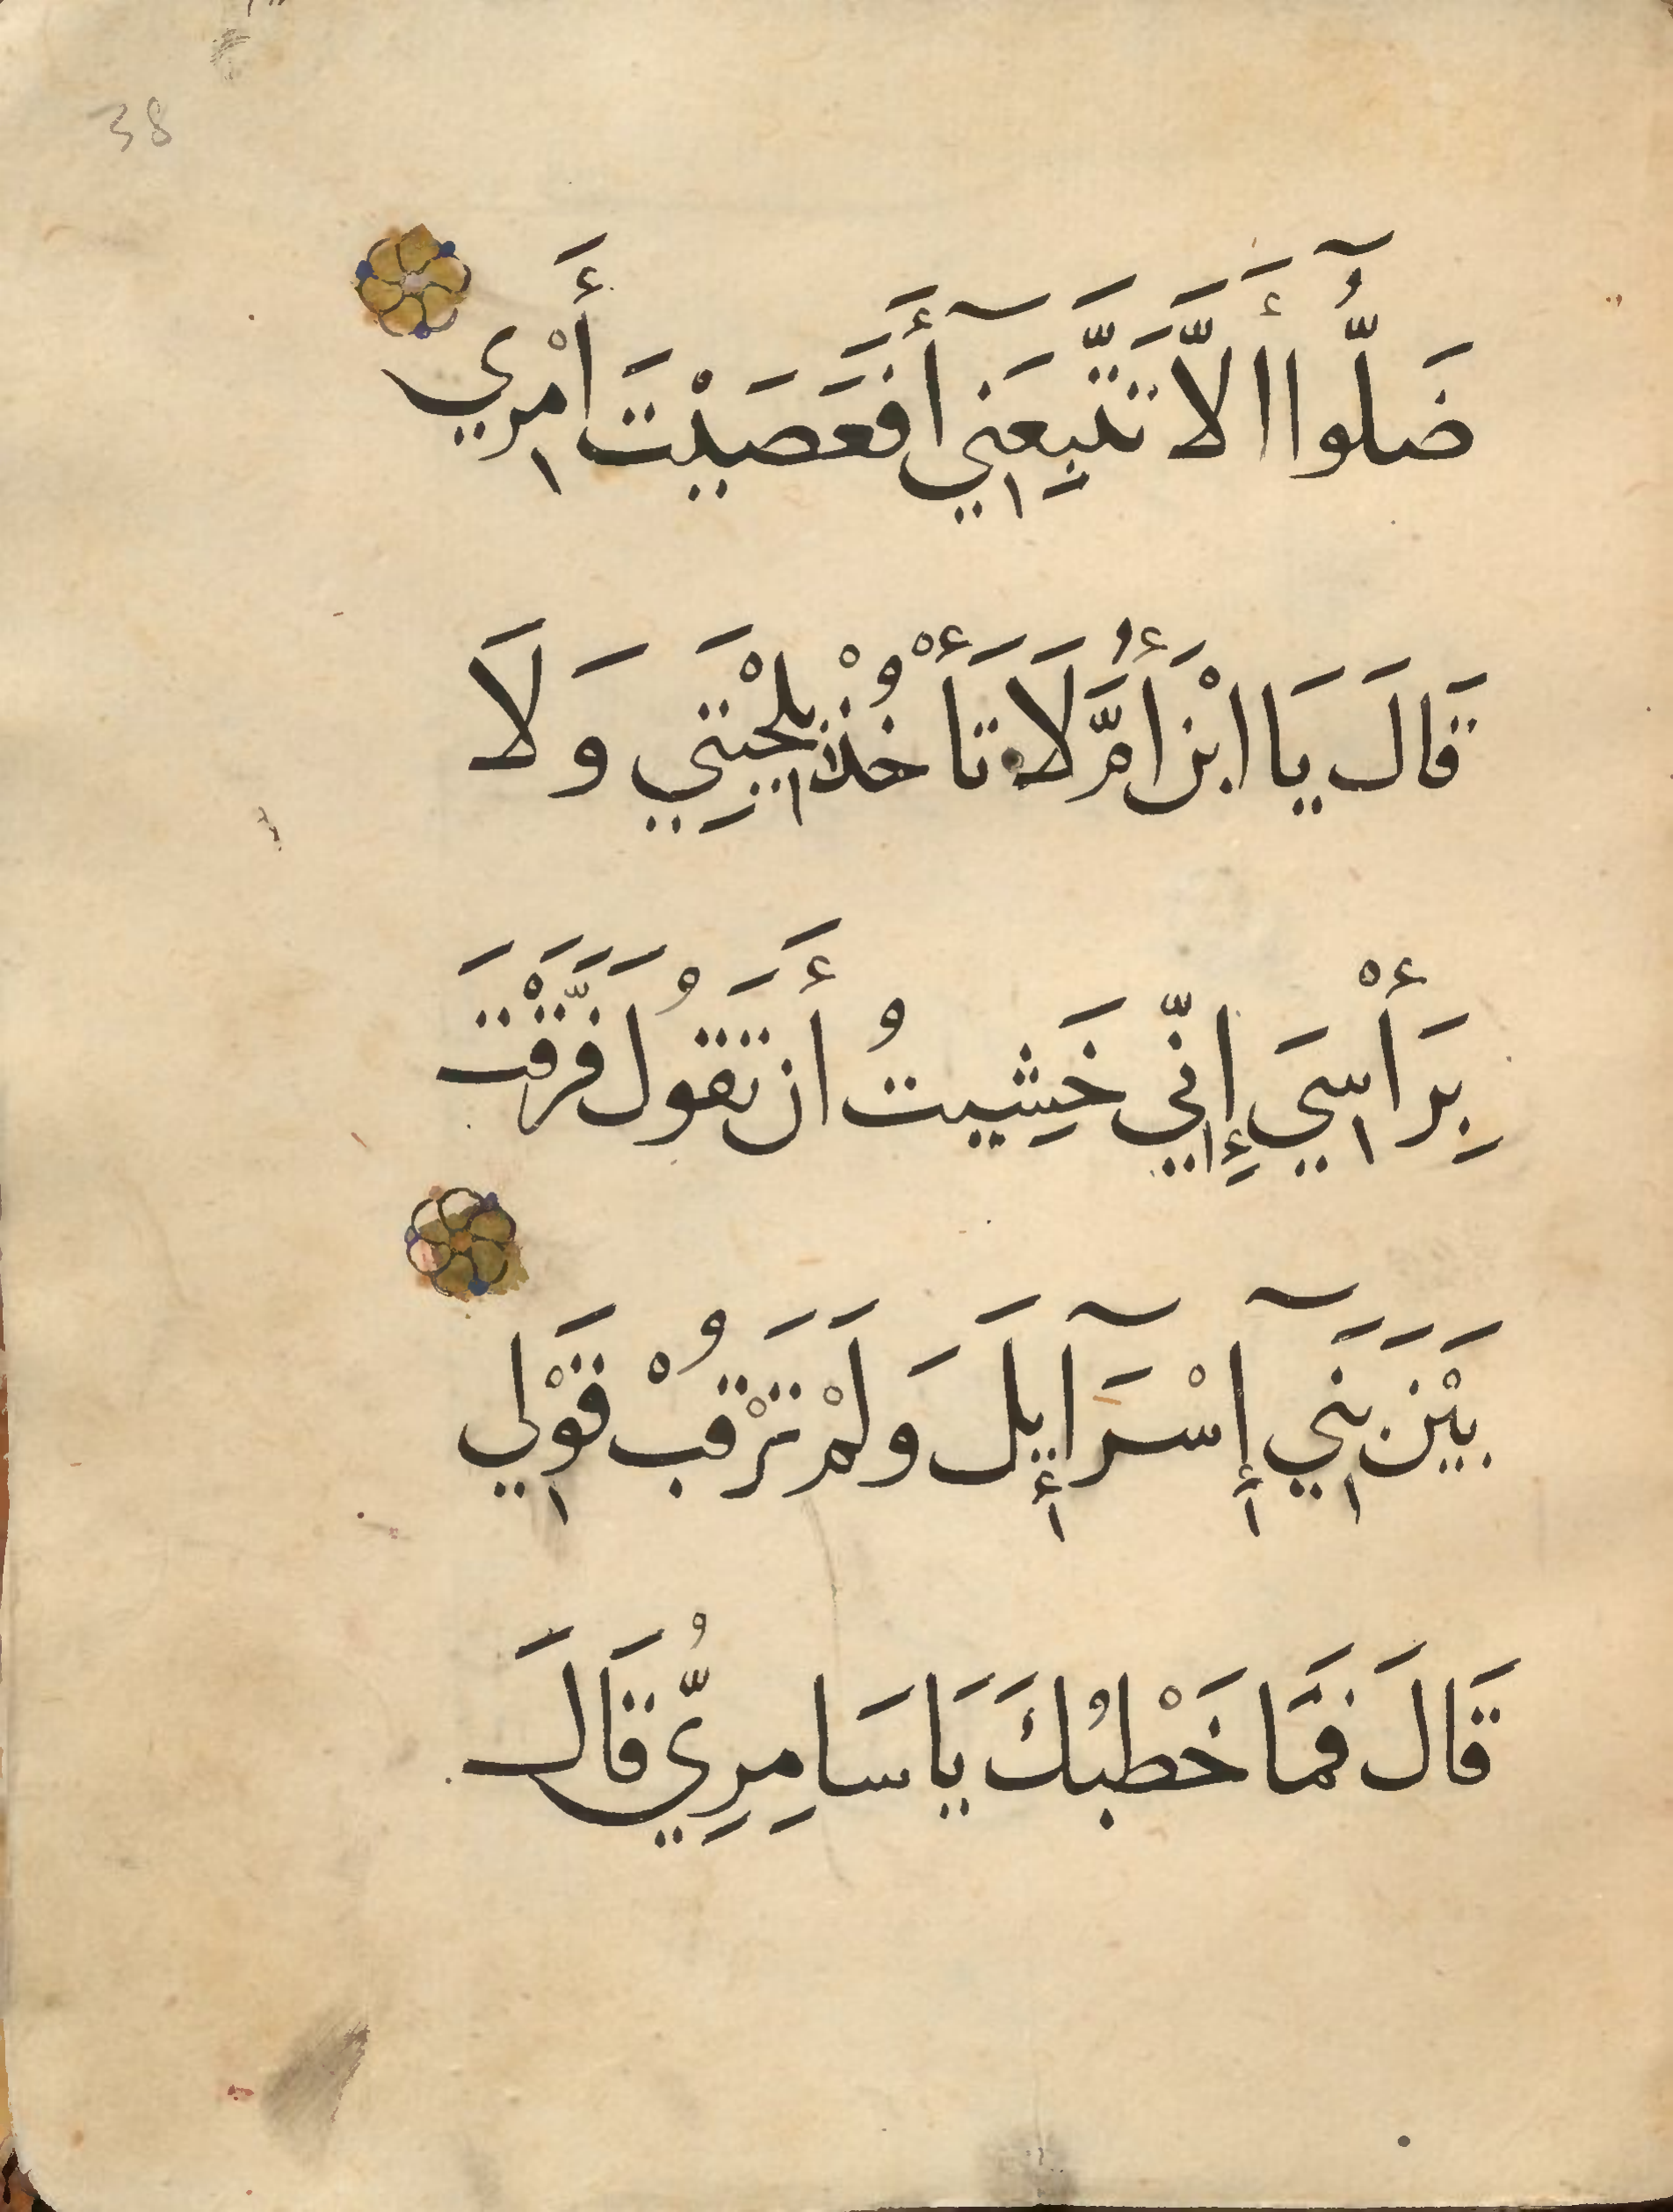 38
ضَلُّوٓا أَلَّا تَتَّبِعَنِيٓ أَفَعَصَيْتَ أَمْرِي
قَالَ يَا ابْنَ أُمَّ لَا تَأْخُذْ بِلِحْيَتِي وَلَا
بِرَأْسِيَ إِنِّي خَشِيتُ أَن تَقُولَ فَرَّقْتَ
بَيْنَ بَنِيٓ إِسْرَآئِيلَ وَلَمْ تَرْقُبْ قَوْلِي
قَالَ فَمَا خَطْبُكَ يَا سَامِرِيُّ قَالَ